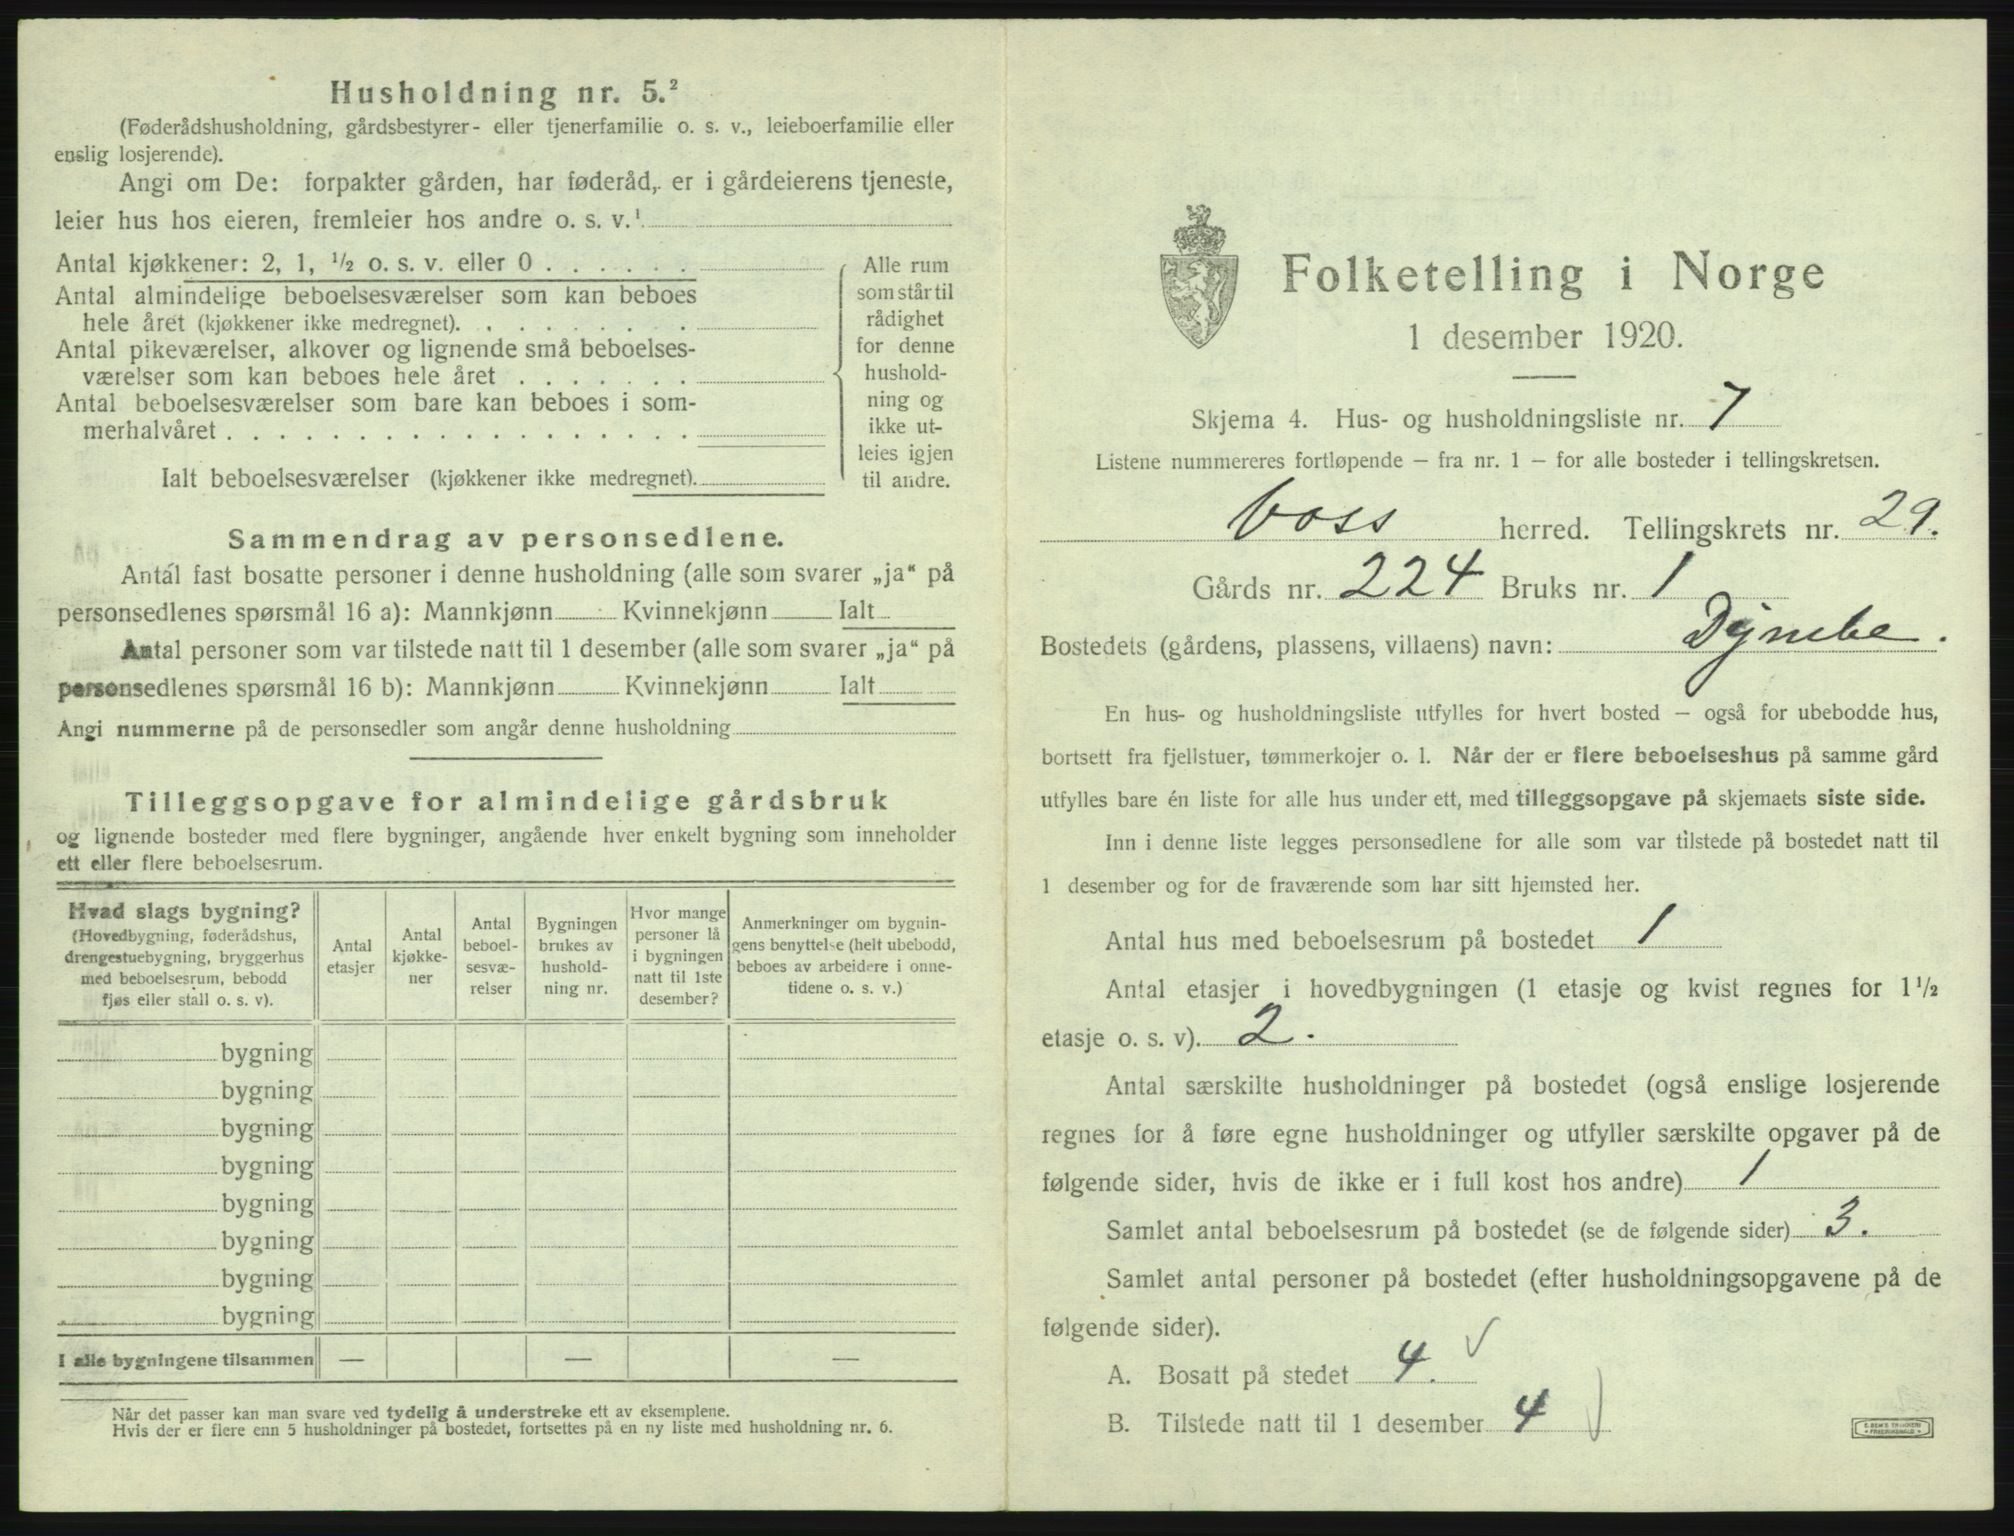 Husholdning nr. 5.²
(Føderådshusholdning, gårdsbestyrer- eller tjenerfamilie o. s. v., leieboerfamilie eller
enslig losjerende).
Angi om De: forpakter gården, har føderåd, er i gårdeierens tjeneste,
leier hus hos eieren, fremleier hos andre o. s. v.¹
Antal kjøkkener: 2, 1, ½ o. s. v. eller 0 . . . . . .
Antal almindelige beboelsesværelser som kan beboes
hele året (kjøkkener ikke medregnet). . . . . . . . .
Antal pikeværelser, alkover og lignende små beboelses-
værelser som kan beboes hele året . . . . . . .
Antal beboelsesværelser som bare kan beboes i som-
merhalvåret . . . . . . . . . . . . . . . . . .
Ialt beboelsesværelser (kjøkkener ikke medregnet).
Alle rum
som står til
rådighet
for denne
hushold-
ning og
ikke ut-
leies igjen
til andre.
Sammendrag av personsedlene.
Antal fast bosatte personer i denne husholdning (alle som svarer „ja“ på
personsedlenes spørsmål 16 a): Mannkjønn Kvinnekjønn Ialt
Antal personer som var tilstede natt til 1 desember (alle som svarer „ja“ på
personsedlenes spørsmål 16 b): Mannkjønn Kvinnekjønn Ialt
Angi nummerne på de personsedler som angår denne husholdning
Tilleggsopgave for almindelige gårdsbruk
og lignende bosteder med flere bygninger, angående hver enkelt bygning som inneholder
ett eller flere beboelsesrum.
Hvad slags bygning?
(Hovedbygning, føderådshus,
drengestuebygning, bryggerhus
med beboelsesrum, bebodd
fjøs eller stall o. s. v).
Antal
etasjer
Antal
kjøkke-
ner
Antal
beboel-
sesvæ-
relser
Bygningen
brukes av
hushold-
ning nr.
Hvor mange
personer lå
i bygningen
natt til 1ste
desember?
Anmerkninger om bygnin-
gens benyttelse (helt ubebodd,
beboes av arbeidere i onne-
tidene o. s. v.)
bygning
bygning
bygning
bygning
bygning
bygning
bygning
bygning
I alle bygningene tilsammen — — —
Når det passer kan man svare ved tydelig å understreke ett av eksemplene.
Hvis der er flere enn 5 husholdninger på bostedet, fortsettes på en ny liste med husholdning nr. 6.
Folketelling i Norge
1 desember 1920.
Skjema 4. Hus- og husholdningsliste nr. 7
Listene nummereres fortløpende — fra nr. 1 — for alle bosteder i tellingskretsen.
Voss herred. Tellingskrets nr. 29.
Gårds nr. 224 Bruks nr. 1
Bostedets (gårdens, plassens, villaens) navn: Dymbe.
En hus- og husholdningsliste utfylles for hvert bosted — også for ubebodde hus,
bortsett fra fjellstuer, tømmerkojer o. l. Når der er flere beboelseshus på samme gård
utfylles bare én liste for alle hus under ett, med tilleggsopgave på skjemaets siste side.
Inn i denne liste legges personsedlene for alle som var tilstede på bostedet natt til
1 desember og for de fraværende som har sitt hjemsted her.
Antal hus med beboelsesrum på bostedet 1
Antal etasjer i hovedbygningen (1 etasje og kvist regnes for 1½
etasje o. s. v). 2.
Antal særskilte husholdninger på bostedet (også enslige losjerende
regnes for å føre egne husholdninger og utfyller særskilte opgaver på de
følgende sider, hvis de ikke er i full kost hos andre) 1
Samlet antal beboelsesrum på bostedet (se de følgende sider) 3.
Samlet antal personer på bostedet (efter husholdningsopgavene på de
følgende sider).
A. Bosatt på stedet 4.
B. Tilstede natt til 1 desember 4